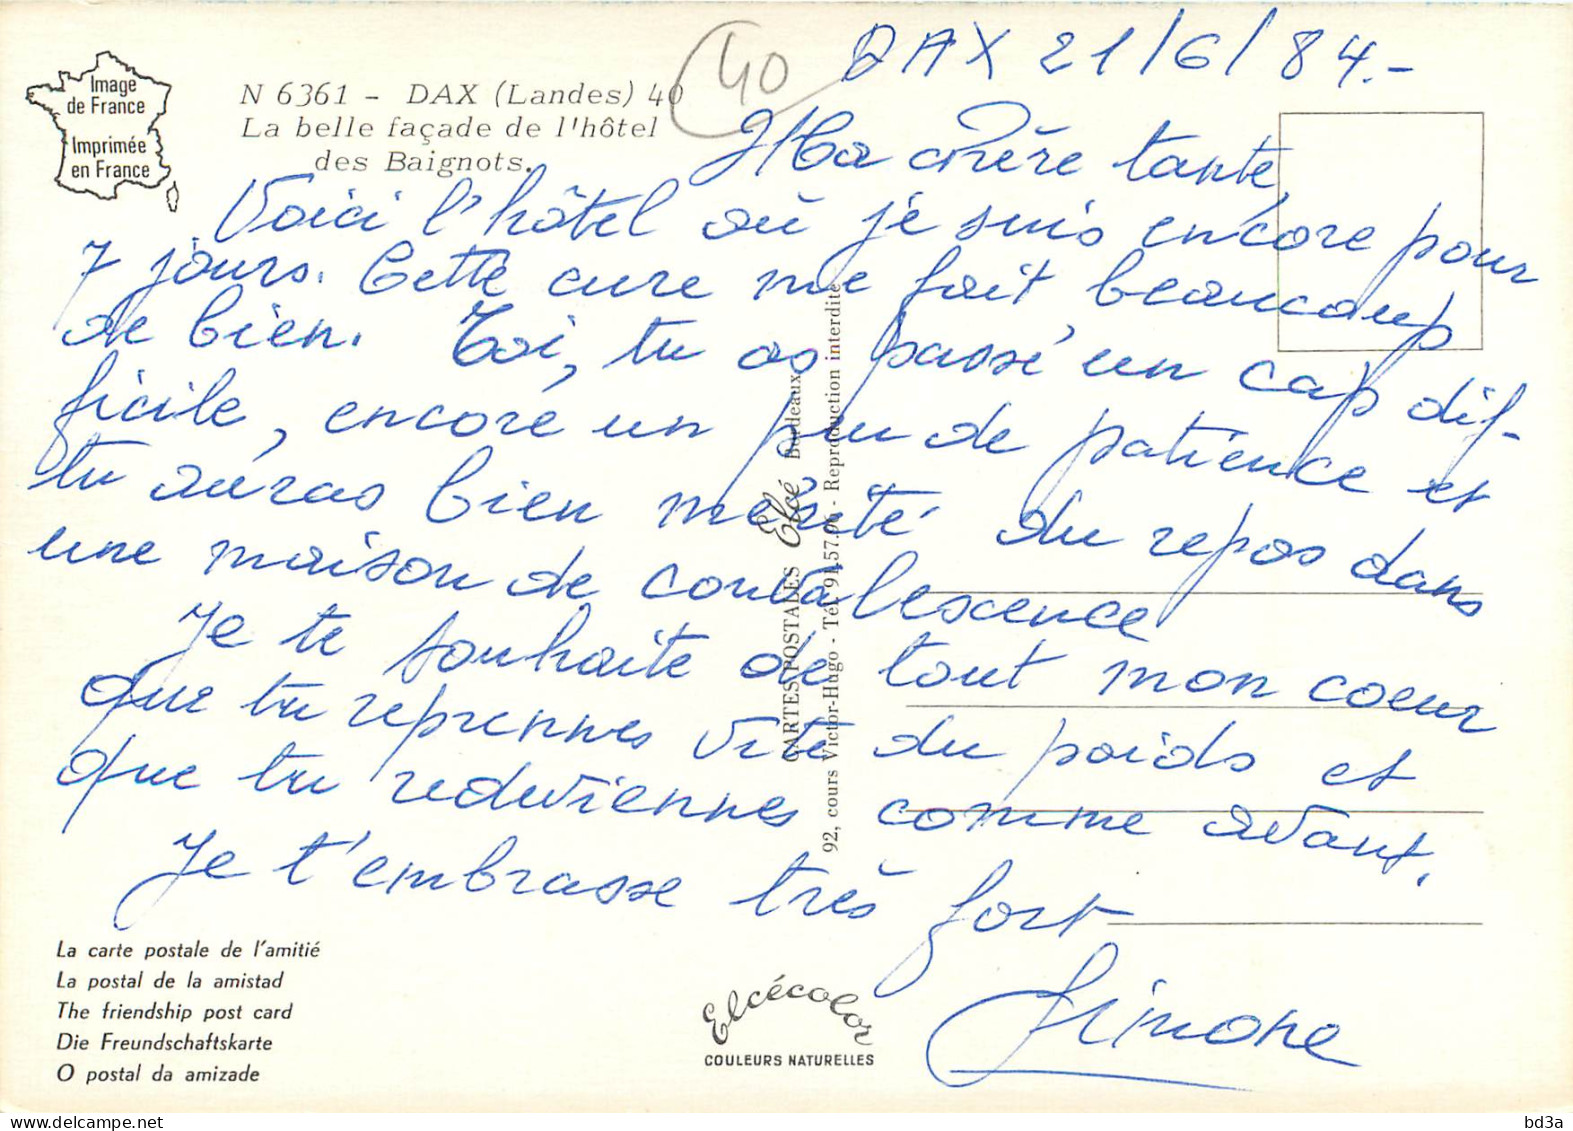 Image
de France
Imprimée
en France
N 6361 - DAX (Landes) 40
La belle façade de l'hôtel
des Baignots.
40
DAX 21/6/84.-
Ma chère tante,
Voici l'hôtel où je suis encore pour
7 jours. Cette cure me fait beaucoup
de bien. Toi, tu as passé un cap dif-
ficile, encore un peu de patience et
tu auras bien mérité du repos dans
une maison de convalescence
Je te souhaite de tout mon coeur
que tu reprennes vite du poids et
que tu redeviennes comme avant.
Je t'embrasse très fort
Simone
CARTES POSTALES Elcé Bordeaux
92, cours Victor-Hugo - Tél. 91.57. - Reproduction interdite
La carte postale de l'amitié
La postal de la amistad
The friendship post card
Die Freundschaftskarte
O postal da amizade
Elcécolor
COULEURS NATURELLES
www.delcampe.net
bd3a